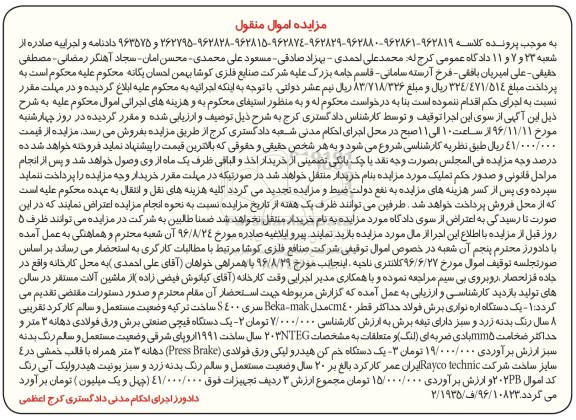 مزایده اموال منقول
به موجب پرونده کلاسه 962819-962861-962880-962829-962874-962815-962828-262795 و 963575 دادنامه و اجراییه صادره از
شعبه 23 و 7 و 11 دادگاه عمومی کرج له: محمدعلی احمدی - بهزاد صادقی- مسعود علی محمدی- محسن امان- سجاد آهنگر رمضانی- مصطفی
حقیقی- علی امیریان بافقی- فرخ آرسته سامانی- قاسم جامه بزرگ علیه شرکت صنایع فلزی کوشا بهمن احسان یگانه محکوم علیه محکوم است به
پرداخت مبلغ 324/471/514 ریال و مبلغ 83/718/326 ریال نیم عشر دولتی. با توجه به اینکه اجرائیه به محکوم علیه ابلاغ گردیده و در مهلت مقرر
نسبت به اجرای حکم اقدام ننموده است بنا به درخواست محکوم له و به منظور استیفای محکوم به و هزینه های اجرائی اموال محکوم علیه به شرح
ذیل این آگهی از سوی این اجرا توقیف و توسط کارشناس دادگستری کرج به شرح ذیل توصیف و ارزیابی شده و مقرر گردیده در روز چهارشنبه
مورخ 96/11/11 از ساعت 10 الی 11 صبح در محل اجرای احکام مدنی شعبه دادگستری کرج از طریق مزایده بفروش می رسد. مزایده از قیمت
41/000/000 ریال طبق نظریه کارشناسی شروع می شود و به هر شخص حقیقی و حقوقی که بالاترین قیمت را پیشنهاد نماید فروخته خواهد شد ده
درصد وجه مزایده فی المجلس بصورت وجه نقد یا چک بانکی تضمینی از خریدار اخذ و الباقی ظرف یک ماه از وی وصول خواهد شد و پس از انجام
مراحل قانونی و صدور حکم تملیک مورد مزایده بنام خریدار منتقل خواهد شد. در صورتیکه در مهلت مقرر خریدار وجه مزایده را پرداخت ننماید
سپرده وی پس از کسر هزینه های مزایده به نفع دولت ضبط و مزایده تجدید می گردد. کلیه هزینه های نقل و انتقال به عهده محکوم علیه است
که از محل فروش پرداخت خواهد شد. طرفین می توانند ظرف یک هفته از تاریخ مزایده نسبت به نحوه انجام مزایده اعتراض نمایند که در این
صورت تا رسیدگی به اعتراض از سوی دادگاه مورد مزایده به نام خریدار منتقل نخواهد شد ضمنا طالبین به شرکت در مزایده می توانند ظرف 5
روز قبل از مزایده با اطلاع این اجرا از مال مورد مزایده بازید نمایند. پیرو ابلاغیه صادره مورخ 96/8/24 آن شعبه محترم و هماهنگی به عمل آمده
با دادورز محترم پنجم آن شعبه در خصوص اموال توقیفی شرکت صنایع فلزی کوشا مرتبط با مطالبات کارگری به استحضار می رساند بر اساس
صورتجلسه توقیف اموال مورخ 96/6/27 کلانتری ناحیه، اینجانب مورخ 96/8/29 با همراهی خواهان (آقای علی احمدی) به محل کارخانه واقع در
جاده قزلحصار، روبروی بی سیم مراجعه نموده و با همکاری مدیر اجرایی وقت کارخانه (آقای کیانوش فیضی زاده) از ماشین آلات مستقر در سالن
های تولید بازدید کارشناسی و ارزیابی به عمل آمده که گزارش مربوطه جهت استحضار آن مقام محترم و صدور دستورات مقتضی تقدیم می
گردد: 1- یک دستگاه اره نواری برش فولاد حداکثر قطر 40cm مدل Beka-mak سری S 400 ساخت ترکیه وضعیت مستعمل و سالم کارکرد تقریبی
8 سال رنگ بدنه زرد و سبز دارای تیغه برش به ارزش کارشناسی 7/000/000 تومان 2- یک دستگاه قیچی صنعتی برش ورق فولادی دهانه 3 متر و
حداکثر ضخامت 5mm بادی ضربه ای (لنگ) و متعلقات به مشخصات 203NTEG سال ساخت 1991 اروپای شرقی وضعیت مستعمل و سالم رنگ بدنه
سبز ارزش برآوردی 19/000/000 تومان 3- یک دستگاه خم کن هیدرو لیکی ورق فولادی (Press Brake) دهانه 3 متر همراه با قالب خمشی در 4
سایز ساخت شرکت Rayco technic ایران عمر کارکرد بالغ بر 20 سال وضعیت مستعمل و سالم رنگ بدنه زرد و سبز یونیت هیدرولیک آبی رنگ
کد اموال 202PB و ارزش برآوردی 15/000/000 تومان مجموع ارزش 3 ردیف تجهیزات فوق 41/000/000 (چهل و یک میلیون) تومان برآورد
می گردد. 96/10823/ف/2/1935
دادورز اجرای احکام مدنی دادگستری کرج اعظمی